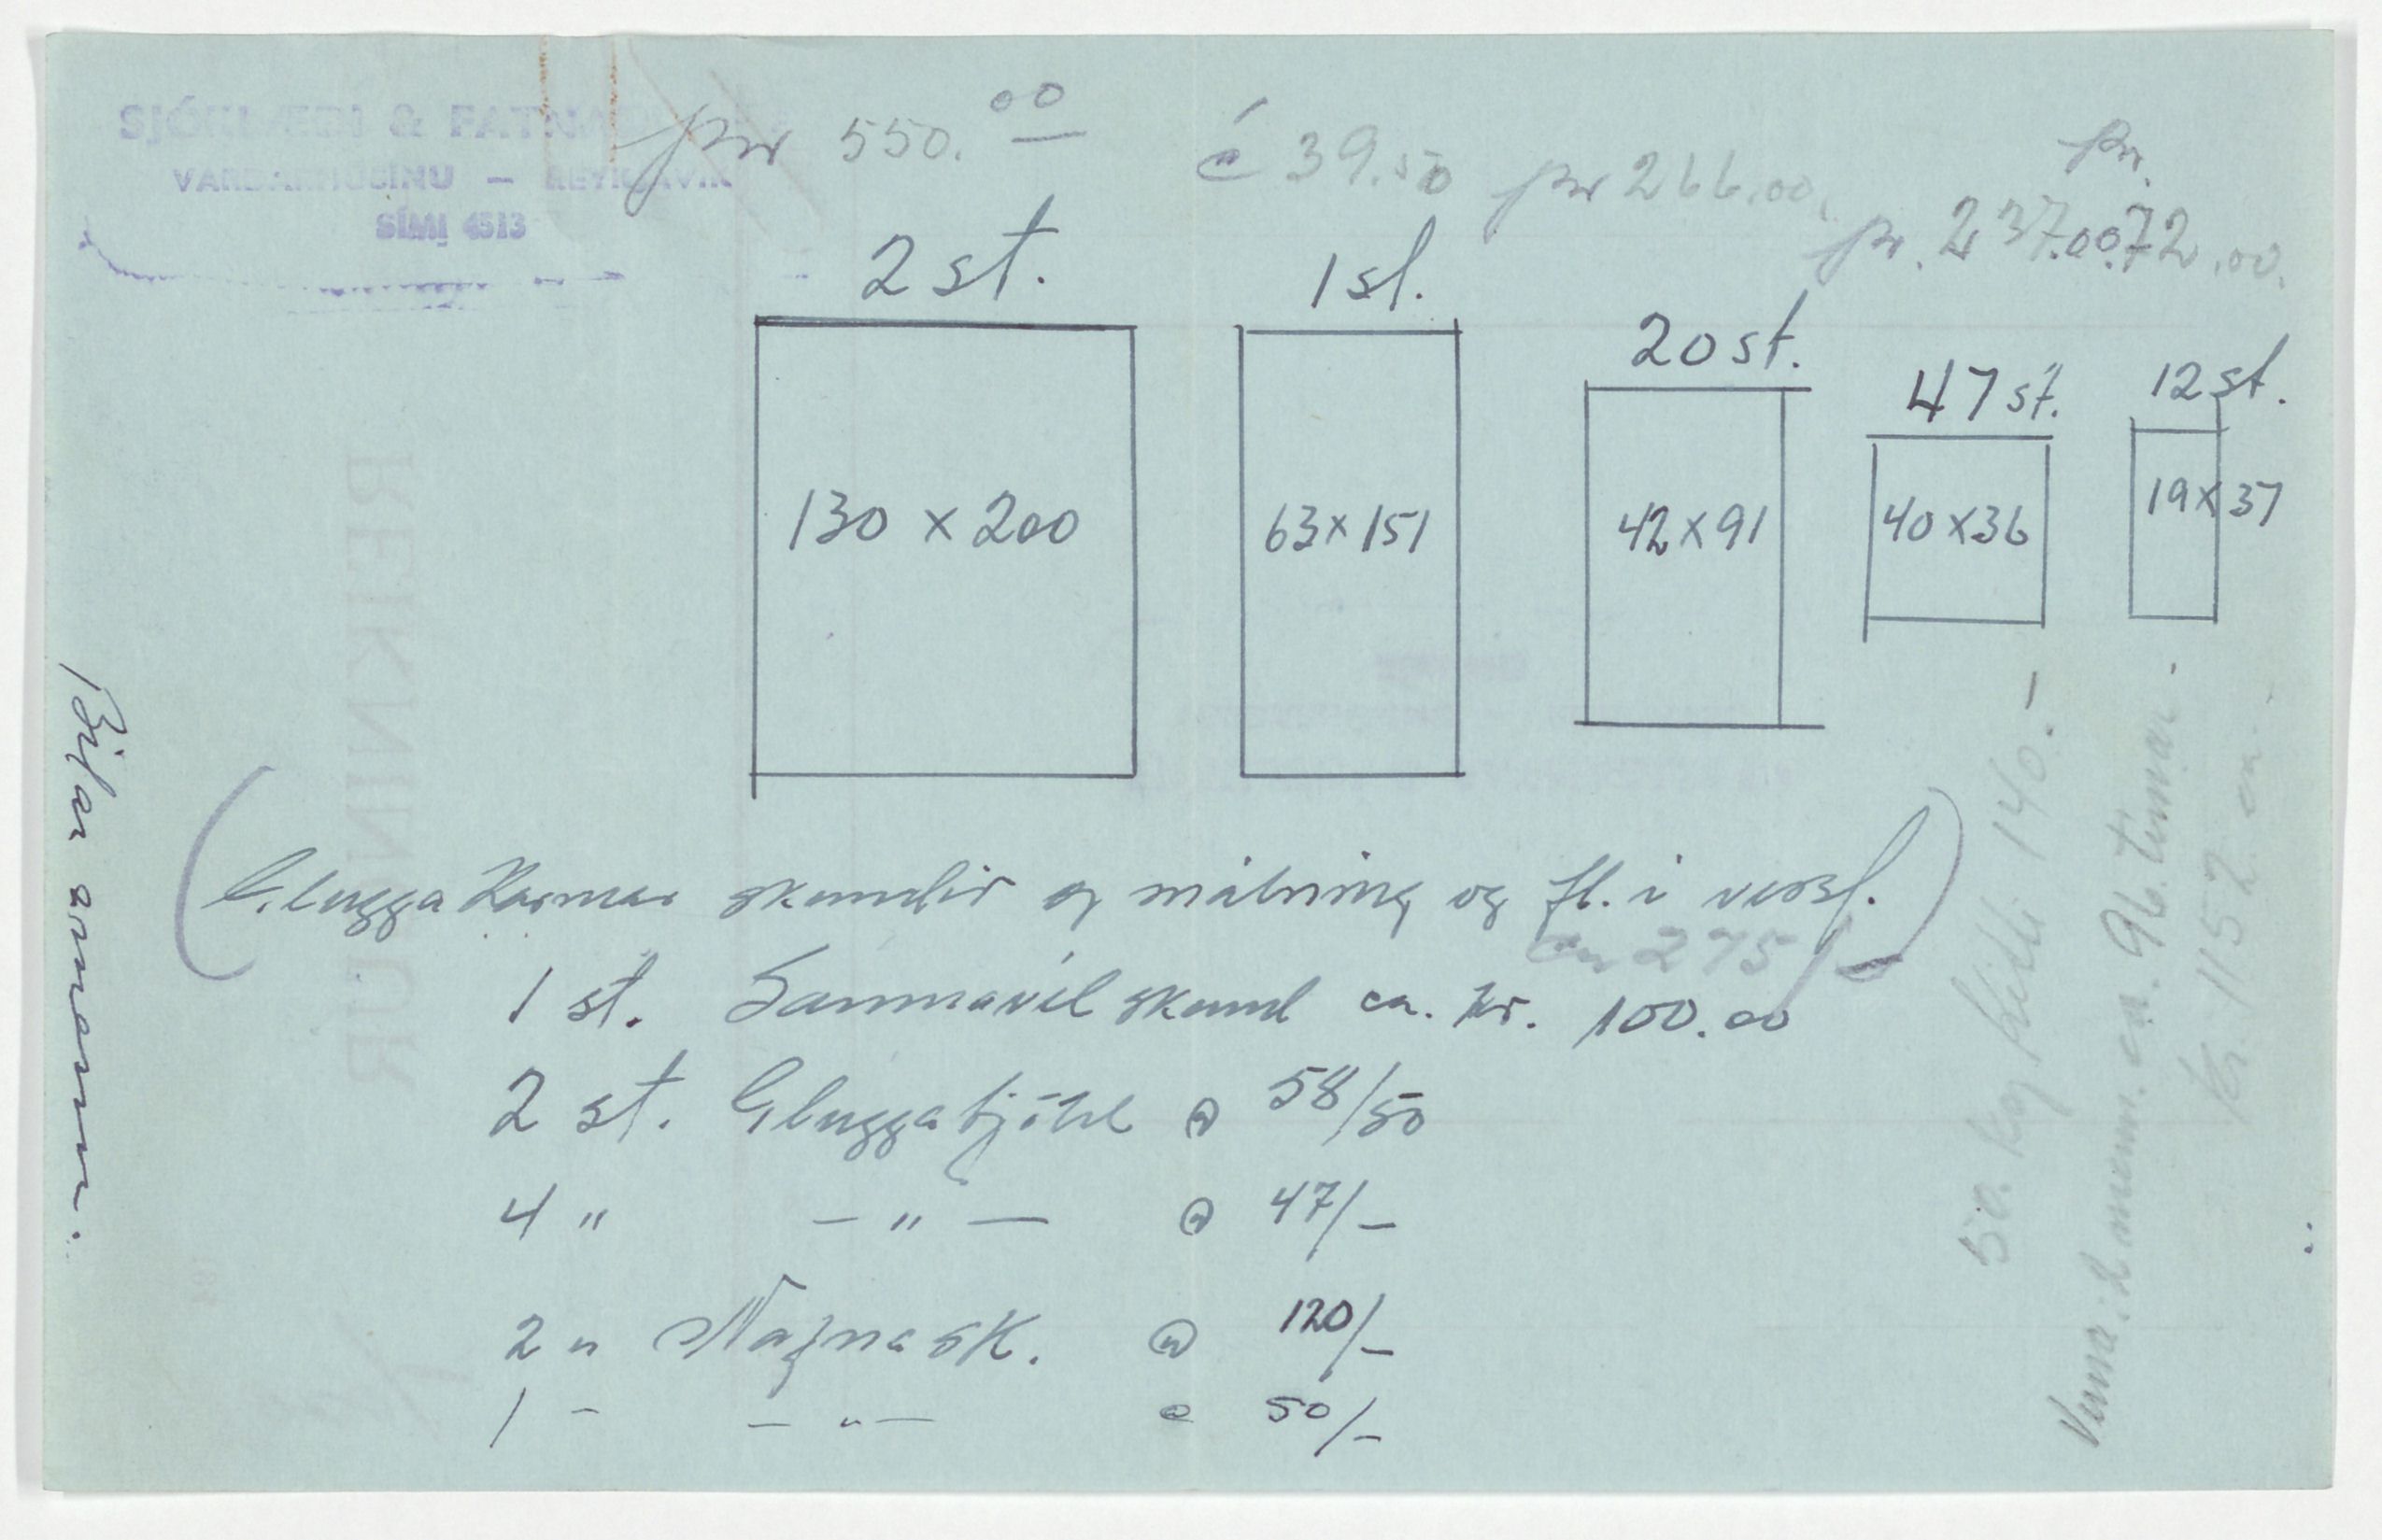 SJÓKLÆÐI & FATNAÐUR
VARÐARHÚSINU — REYKJAVÍK
SÍMI 4513
pr 550.00
á 39.50
pr 266.00.
pr. 237.00.
pr.
72.00.
2 st.
1 st.
20 st.
47 st.
12 st.
130 x 200
63 x 151
42 x 91
40 x 36
19 x 37
REIKNINGUR
Glugga Karmar skemdir og málning og fl. i versl.
ca 275/–
1 st. Saumavél skemd ca. kr. 100.00
2 st. Gluggatjöld @ 58/50
4 " — " — @ 47/–
2 " sk. @ 120/–
1 – – " — @ 50/–
50. kg kítti 140.–
Vinna: 2 menn. ca. 96. timar.
Kr. 1152 ca.